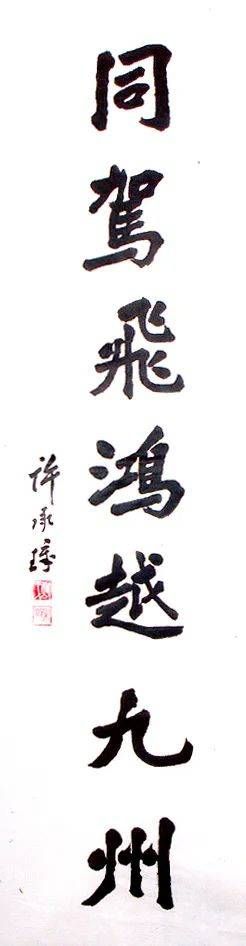 同駕飛鴻越九州
許承